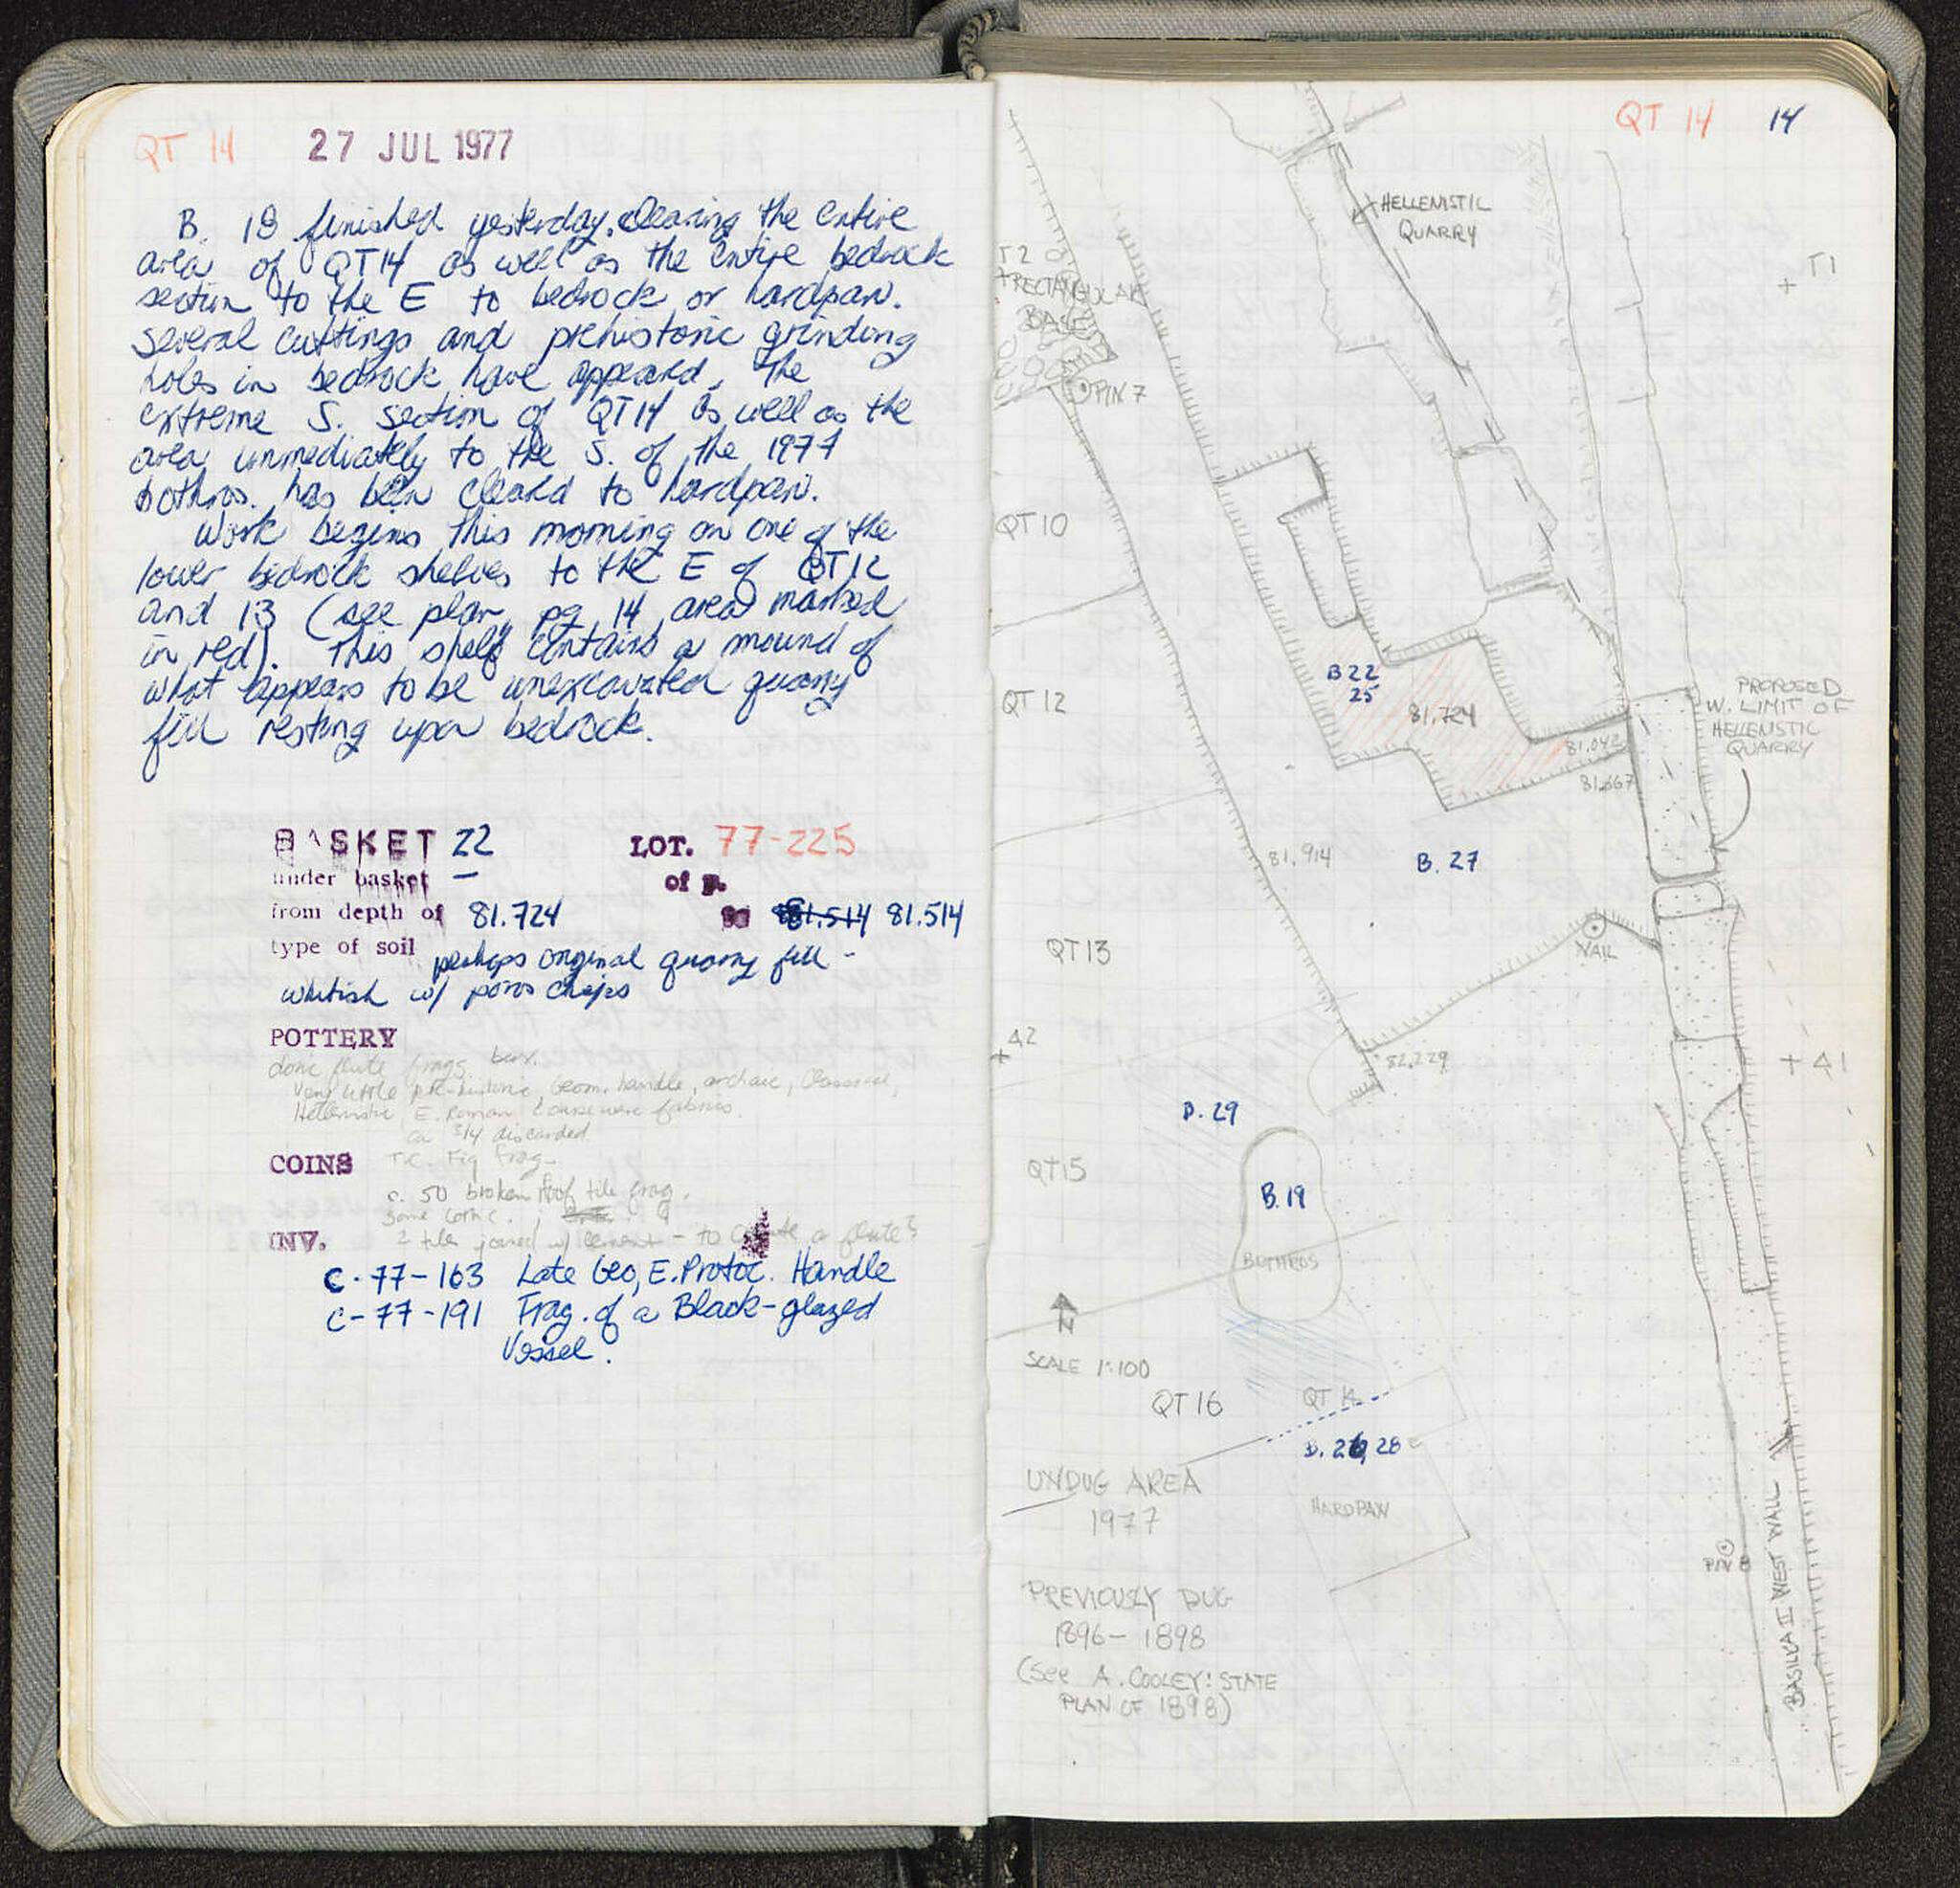 QT 14 27 JUL 1977
B. 18 finished yesterday, clearing the entire
area of QT14 as well as the entire bedrock
section to the E to bedrock or hardpan.
Several cuttings and prehistoric grinding
holes in bedrock have appeared. The
extreme S. section of QT14 as well as the
area immediately to the S. of the 1977
bothros. has been cleared to hardpan.
Work begins this morning on one of the
lower bedrock shelves to the E of QT12
and 13 (see plan, pg 14, area marked
in red). This shelf contains a mound of
what appears to be unexcavated quarry
fill resting upon bedrock.
BASKET 22 LOT. 77-225
under basket — of p.
from depth of 81.724 to 81.514 81.514
type of soil perhaps original quarry fill -
whitish w/ poros chips
POTTERY
doric flute frags. box.
Very little pre-historic, Geom. handle, archaic, Classical,
Hellenistic, E. Roman coarseware fabrics.
ca 3/4 discarded.
COINS T.C. Fig frag.
c. 50 broken roof tile frag.
some
INV. 2 tiles joined w/ cement - to a flute?
C-77-163 Late Geo, E. Protoc. Handle
C-77-191 Frag. of a Black-glazed
Vessel.
QT 14 14
HELLENISTIC
QUARRY
T2
+ T1
RECTANGULAR
BASE
PIN 7
QT10
B 22
25
QT 12
81.724
PROPOSED
W. LIMIT OF
HELLENISTIC
QUARRY
81.042
81.667
81.914
B. 27
QT13
NAIL
+ Δ2
82.229
+ Δ1
B. 29
QT15
B. 19
BOTHROS
N
SCALE 1:100
QT 16
QT 14
B. 26, 28
UNDUG AREA
1977
HARDPAN
PIN 8
BASILICA II WEST WALL
PREVIOUSLY DUG
1896-1898
(See A. COOLEY: STATE
PLAN OF 1898)